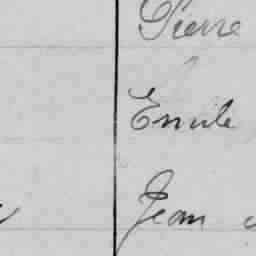 Pierre
Emile
Jean